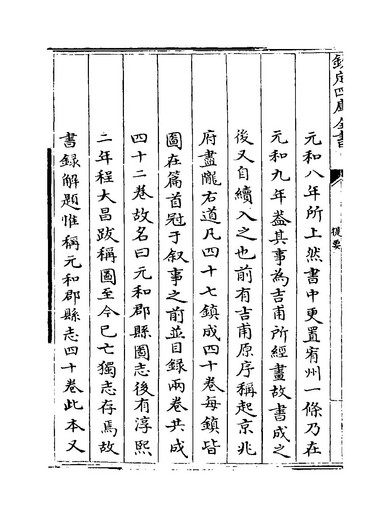 欽定四庫全書
提要
元和八年所上然書中更置宥州一條乃在
元和九年葢其事為吉甫所經畫故書成之
後又自續入之也前有吉甫原序稱起京兆
府盡隴右道凡四十七鎮成四十卷每鎮皆
圖在篇首冠于叙事之前並目録兩卷共成
四十二卷故名曰元和郡縣圖志後有淳熙
二年程大昌跋稱圖至今已亡獨志存焉故
書録解題惟稱元和郡縣志四十卷此本又